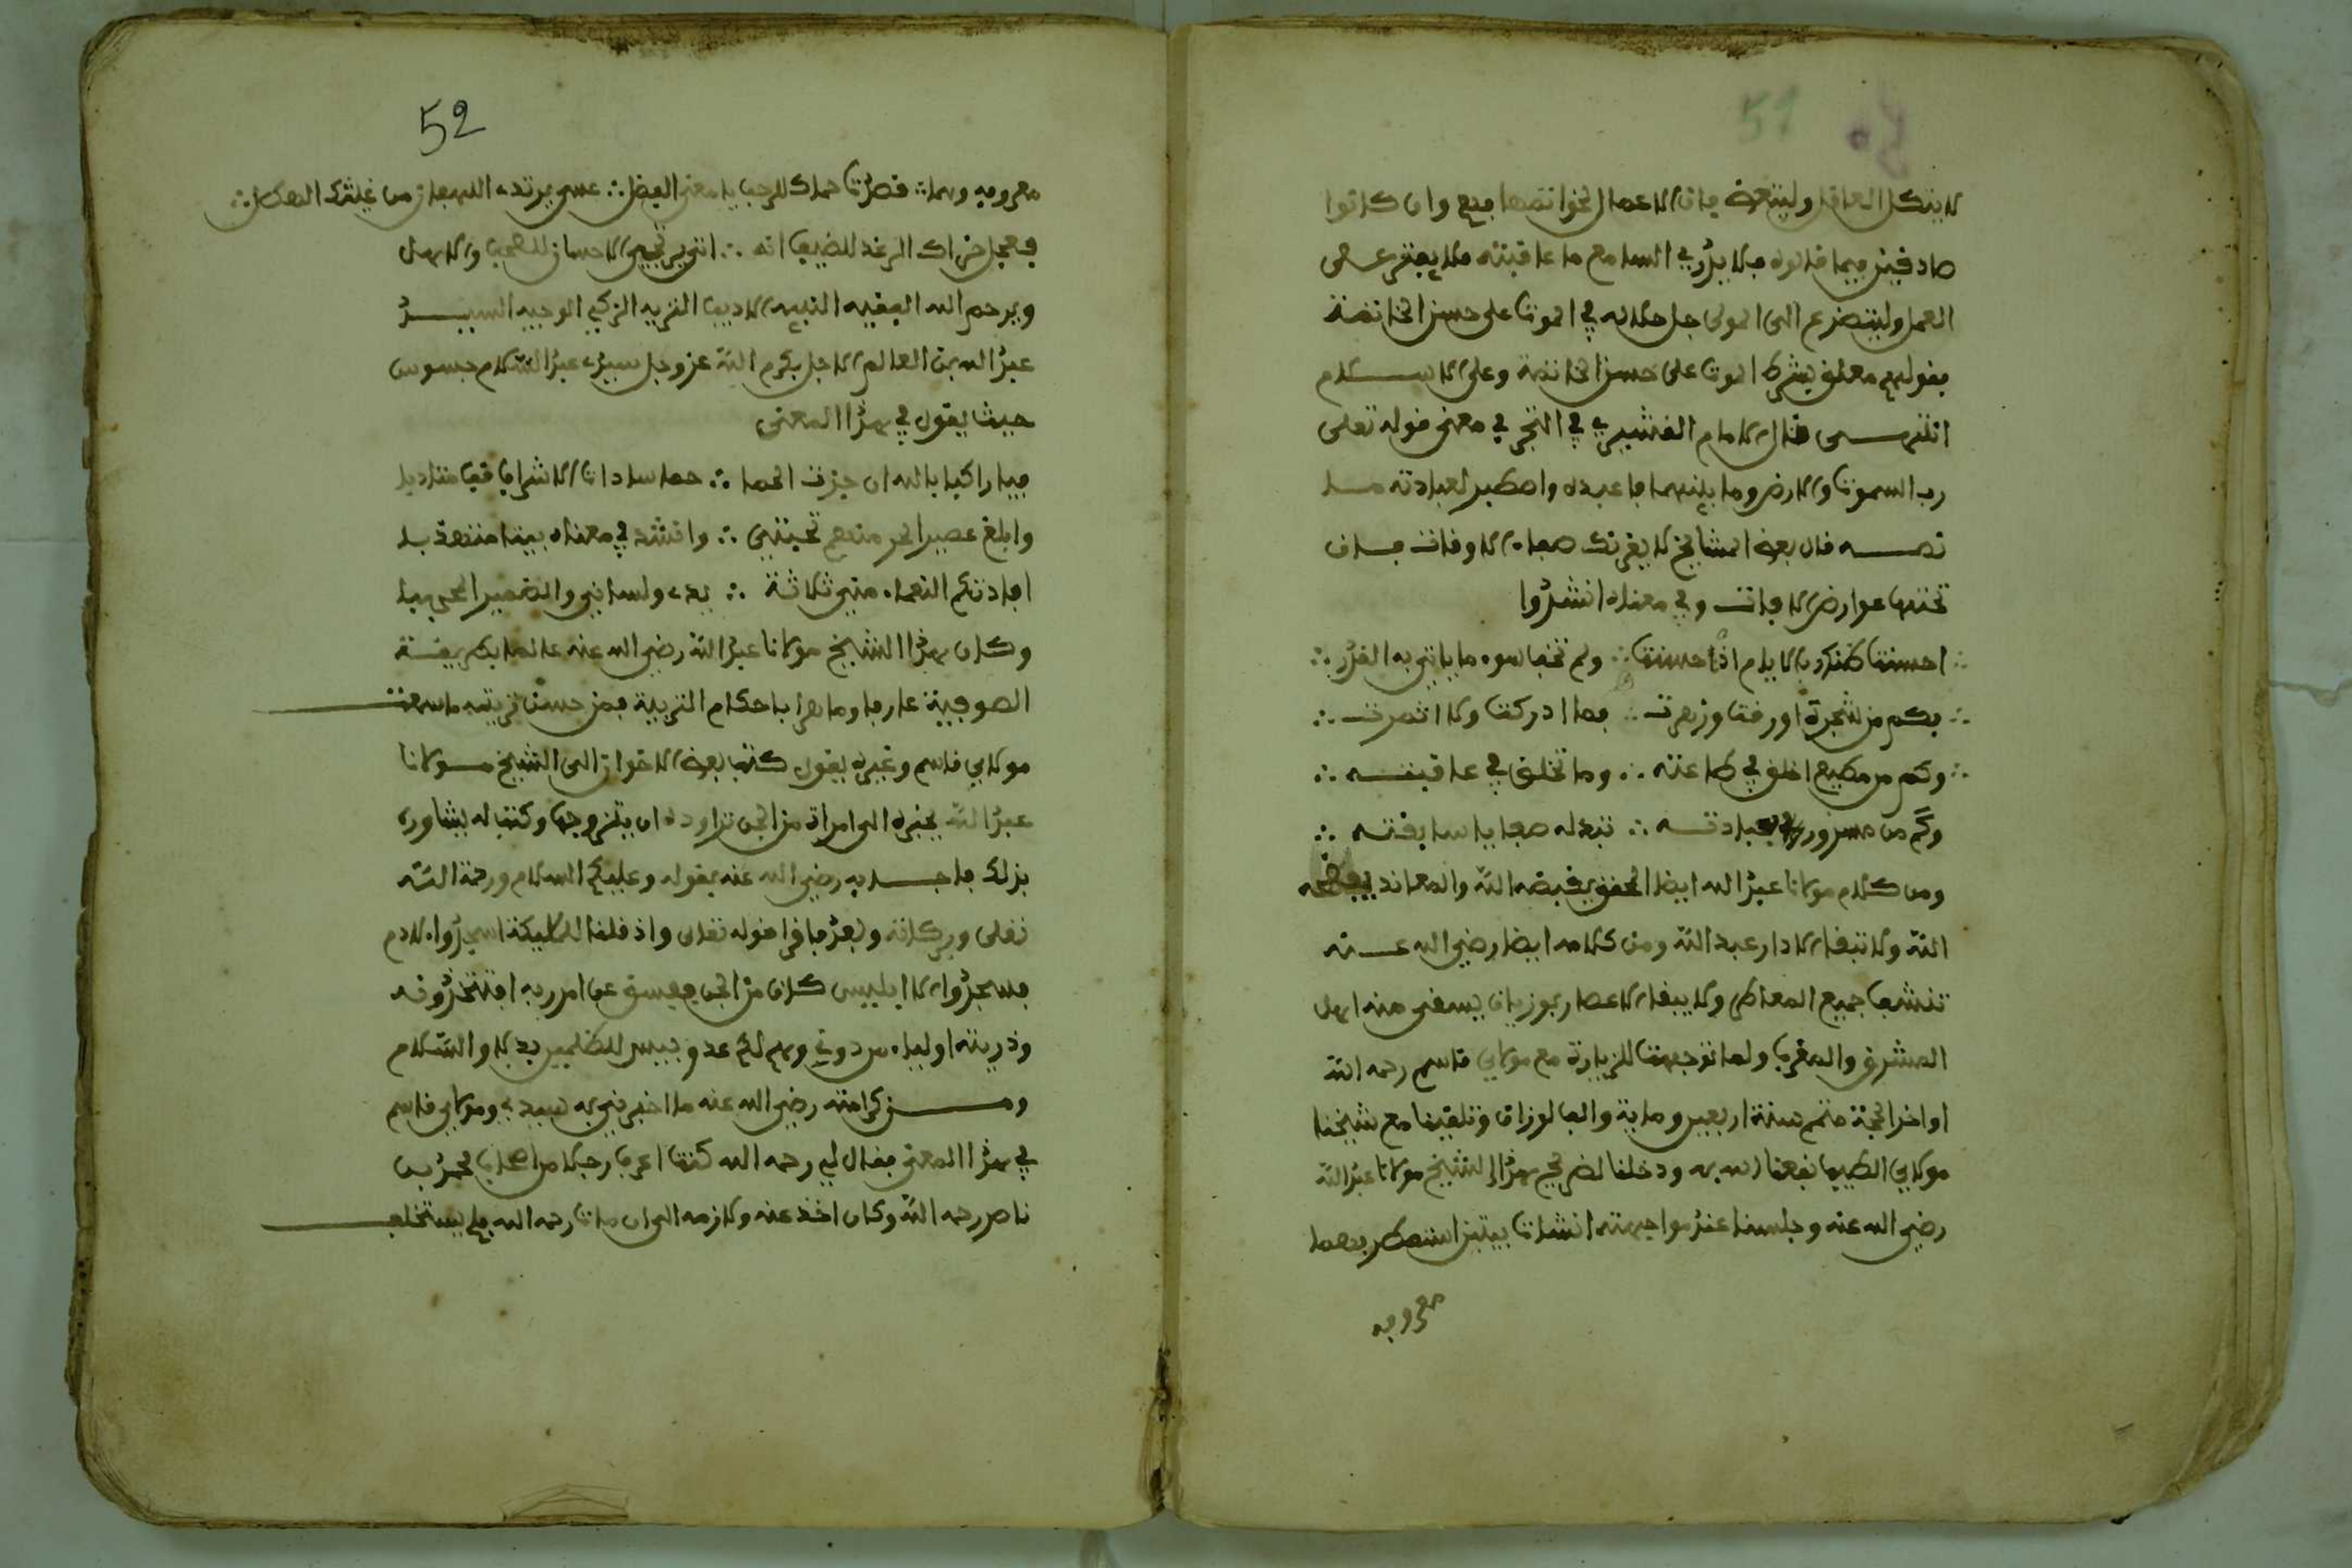 51
لا يتكل العاقل وليتعرض فان الاعمال بخواتمها فيع وان كانوا
صادفين فيما قالوه فلا يدري السامع ما عاقبته فلا يفتر عن
العمل وليتضرع الى المولى جل جلاله في الموت على حسن الخاتمة
بقولهم معلق بشرط الموت على حسن الخاتمة وعلى الاسلام
انتهى قال الامام القشيري في التحبر في معنى قوله تعلى
رب السموت والارض وما بينهما فاعبده واصطبر لعبادته ما
نصه قال بعض المشايخ لا يغرنك صفاء الاوقات فان
تحتها عوارض الافات وفي معناه انشدوا
∴ احسنت ظنك بالايام اذا حسنت ∴ ولم تخف سوء ما ياتي به القدر ∴
∴ فكم من شجرة اورقت وزهرت ∴ فما ادركت ولا اثمرت ∴
∴ وكم من مطيع اخلق في طاعته ∴ وما تخلق في عاقبته ∴
وكم من مسرور بعبادته ∴ تبد له صفايا سابقته ∴
ومن كلام مولانا عبد الله ايضا المحقق يقبضه الله والمعاند يبغضه
الله ولا تبقا الا دار عبد الله ومن كلامه ايضا رضي الله عنه
تنشف جميع المعاطر ولا يبقا الا عصار بوزيان يسقى منه اهل
المشرق والمغرب ولما توجهت للزيارة مع مولاي قاسم رحمه الله
اواخر الحجة متم سنة اربعين وماية والف لوزان وتلقينا مع شيخنا
مولاي الطيب نفعنا الله به ودخلنا لضريح هذا الشيخ مولانا عبد الله
رضي الله عنه وجلسنا عند مواجهته انشدت بيتين استمطر بهما
معروفه
52
معروفه وهما ∴ قصدت حماك للرحب يا معنى الفضل ∴ عسى يرتدى اللهفان من غيثك الهطل ∴
فعجل خزاك الرغد للضيف انه ∴ اتى يرتجي الاحسان للصحب والاهل
ويرحم الله الفقيه النبيه الاديب النزيه الزكي الوجيه السيد
عبد الله بن العالم الاجل بكرم الله عز وجل سيدي عبد السلام جسوس
حيث يقول في هذا المعنى
فيا راكبا بالله ان جزت الحما ∴ حما سادات الاشراف قف مناديا
وابلغ عصير الحر منهم تحيتي ∴ وانشد في معناه بيتا منهذبا
افادتكم النعماء مني ثلاثة ∴ يدي ولساني والضمير المحجبا
وكان هذا الشيخ مولانا عبد الله رضي الله عنه عالما بطريقة
الصوفية عارفا وماهرا باحكام التربية فمن حسن تربيته ما سمعت
مولاي قاسم وغيره يقول كتب بعض الاخوان الى الشيخ مولانا
عبد الله يخبره الى امراة من الجن تراوده ان يتزوجها وكتب له يشاوره
بذلك فاجابه رضي الله عنه بقوله وعليكم السلام ورحمة الله
تعلى وبركاته وبعد فاقرا قوله تعلى واذ قلنا للمليكة اسجدوا لادم
فسجدوا الا ابليس كان من الجن ففسق عن امر ربه افتتخذونه
وذريته اولياء من دوني وهم لكم عدو بيس للظلمين بدلا والسلام
ومن كرامته رضي الله عنه ما اخبرني به سيدي ومولاي قاسم
في هذا المعنى فقال لي رحمه الله كنت اعرف رجلا من اصحاب محمد بن
ناصر رحمه الله وكان اخذ عنه ولازمه الى ان مات رحمه الله فلم يستخلف